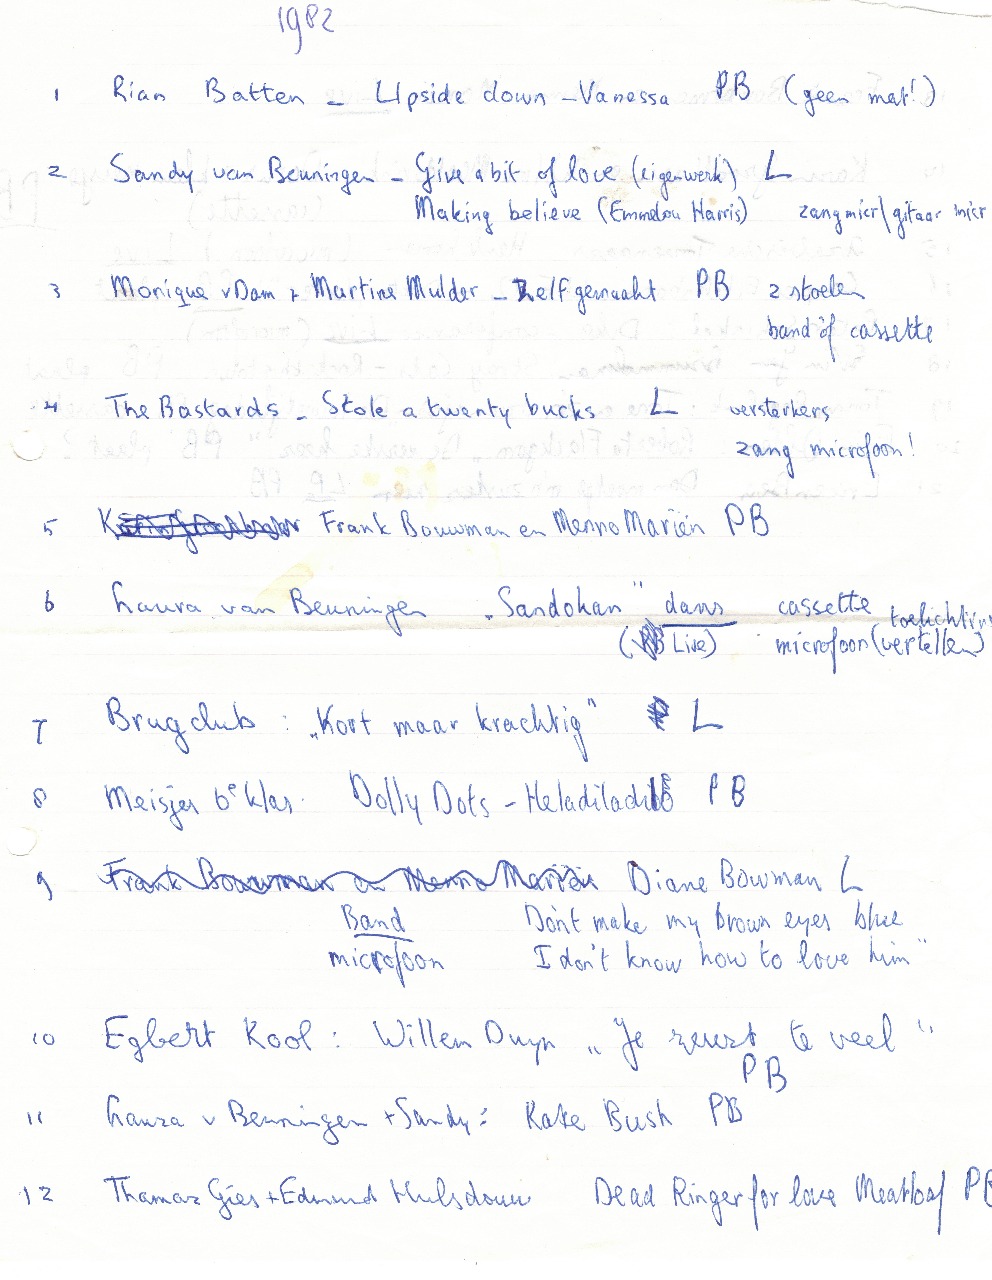 1982
1 Rian Batten - Upside down - Vanessa PB (geen mat!)
2 Sandy van Beuningen - Give a bit of love (eigenwerk) L
Making believe (Emmelou Harris) zangmicr/gitaar micr
3 Monique v Dam + Martine Mulder - Zelf gemaakt PB 2 stoelen
band óf cassette
4 The Bastards - Stole a twenty bucks L versterkers,
zang microfoon!
5 Frank Bouwman en Menno Mariën PB
6 Laura van Beuningen "Sandokan" dans cassette toelichting
(Live) microfoon (vertellen)
7 Brugclub : "Kort maar krachtig" L
8 Meisjes 6e klas. Dolly Dots - Heladiladilo PB
9 Frank Bouwman en Menno Mariën Diane Bowman L
Band Don't make my brown eyes blue
microfoon I don't know how to love him"
10 Egbert Kool : Willem Duyn "Je zeurt te veel"
PB
11 Laura v Beuningen + Sandy : Kate Bush PB
12 Thamar Gies + Edmund Dead Ringer for love Meatloaf PB